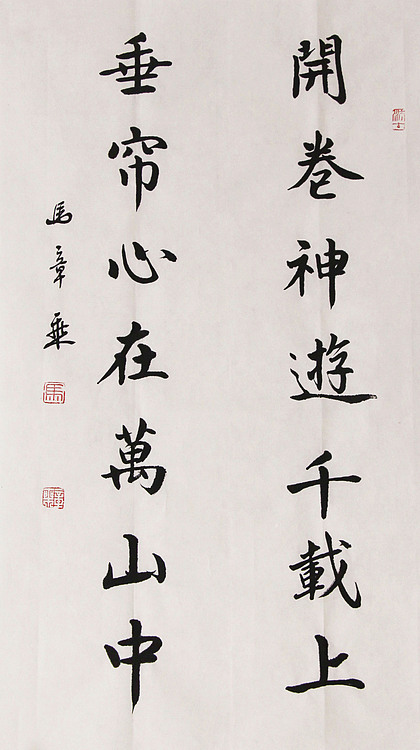 開卷神遊千載上
垂帘心在萬山中
馬章乘